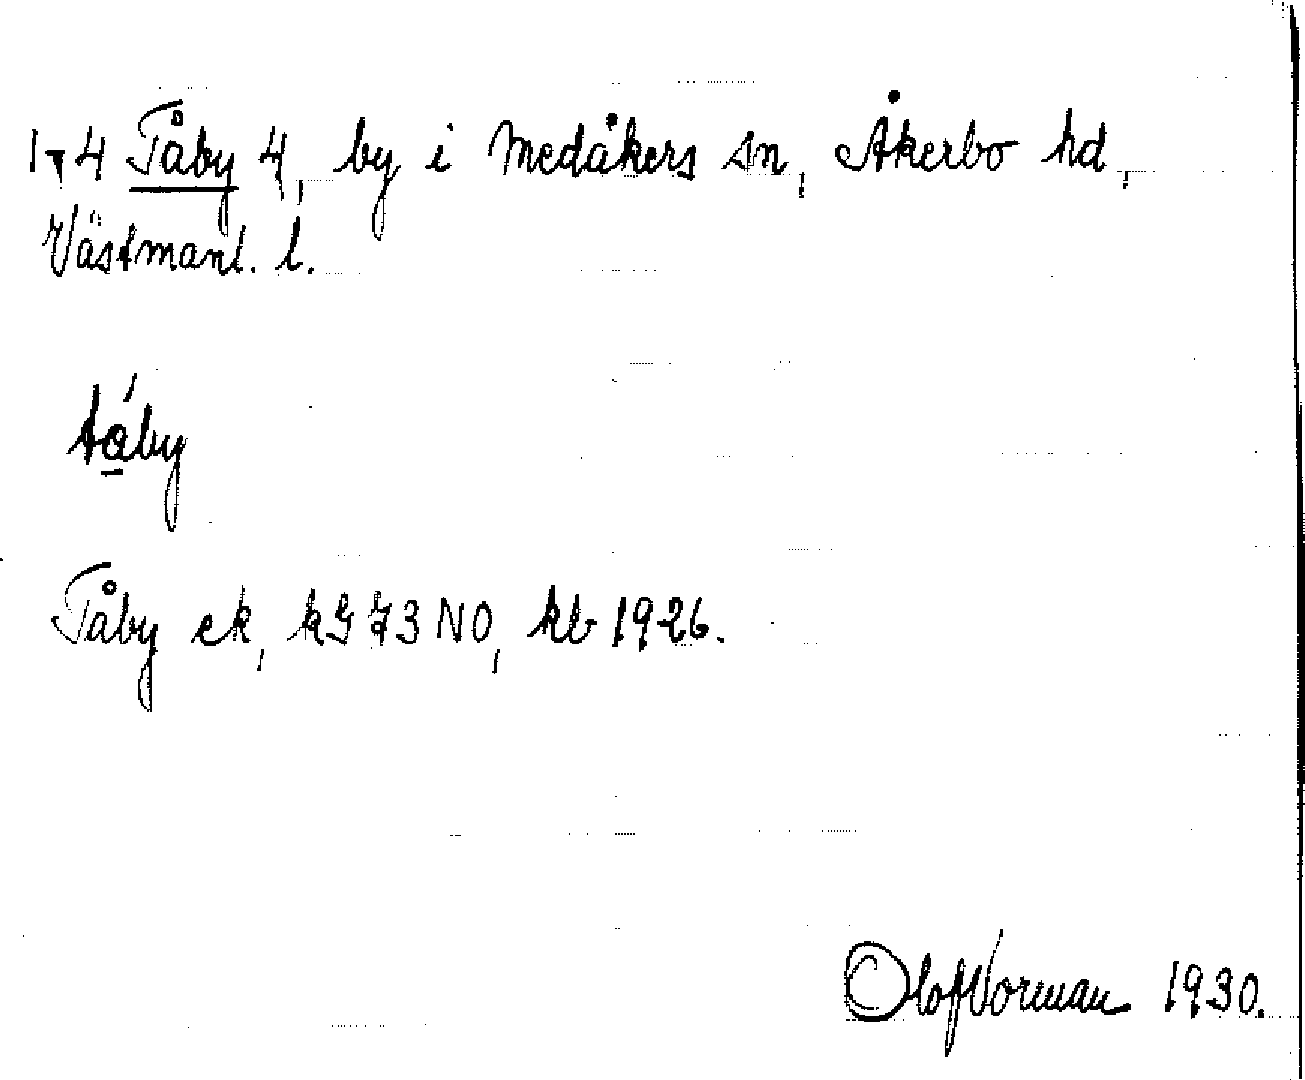 1-4 Tåby 4, by i Medåkers sn, Åkerbo hd,
Västmanl. l.
tåby
Tåby ek, kG 73 NO, kb 1926.
Olof Norman 1930.